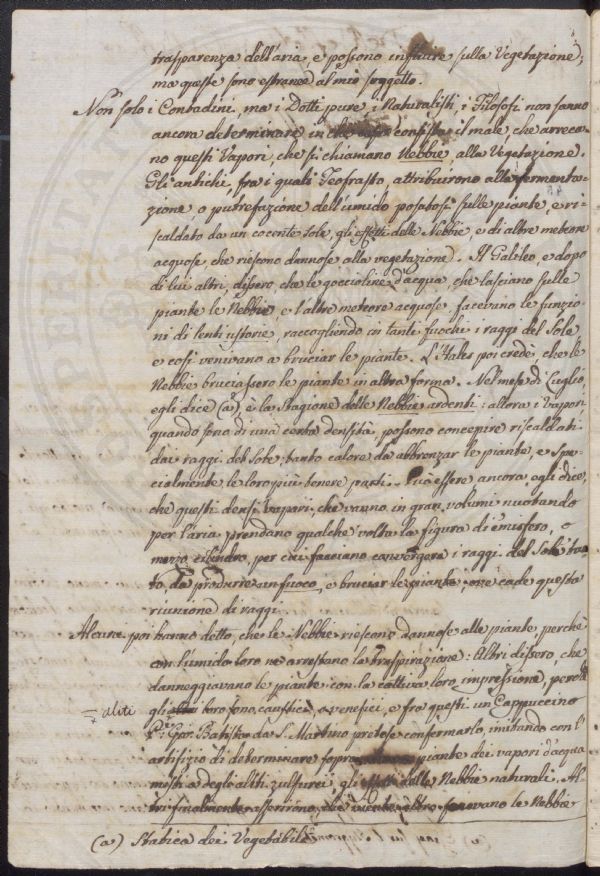 trasparenza dell'aria, e possono influire sulla Vegetazione;
ma queste sono estranee al mio soggetto.
Non solo i Contadini, ma i Dotti pure, i Naturalisti, i Filosofi non sanno
ancora determinare in che consista il male, che arreca-
no questi Vapori, che si chiamano Nebbie, alla Vegetazione.
Gli antichi, fra i quali Teofrasto, attribuirono alla fermenta-
zione, o putrefazione dell'umido posatosi sulle piante, e ri-
scaldato da un cocente sole, gli effetti delle Nebbie, e di altre meteore
acquose, che riescono dannose alla vegetazione. Il Galileo, e dopo
di lui altri, dissero, che le goccioline d'acqua, che lasciano sulle
piante le Nebbie, e l'altre meteore acquose, facevano le funzio-
ni di lenti ustorie, raccogliendo in tanti fuochi i raggi del Sole
e così venivano a bruciar le piante. L'Hales poi crede, che le
Nebbie bruciassero le piante in altra forma. Nel mese di Luglio,
egli dice (a) è la stagione delle Nebbie ardenti: allora i vapori,
quando sono di una certa densità, possono concepire riscaldati
dai raggi del Sole tanto calore da abbronzar le piante, e spe-
cialmente le loro più tenere parti. Può essere ancora, egli dice,
che questi densi vapori, che vanno in gran volumi nuotando
per l'aria prendano qualche volta la figura di emisfero, o
mezzo cilindro, per cui facciano convergere i raggi del Sole tan-
to, da produrre un fuoco, e bruciar le piante, ove cade questa
riunione di raggi.
Alcuni poi hanno detto, che le Nebbie riescono dannose alle piante, perchè
con l'umido loro ne arrestano la traspirazione: Altri dissero, che
danneggiavano le piante con la cattiva loro impressione, perchè
gli aliti loro sono caustici, e venefici, e fra questi un Cappuccino
P. Gio. Batista da S. Martino pretese confermarlo, imitando con l'
artifizio di determinare sopra piante dei vapori d'acqua
misti a degli aliti zulfurei, gli effetti delle Nebbie naturali. Al-
tri finalmente asserirono, che facevano le Nebbie
(a) Statica dei Vegetabili